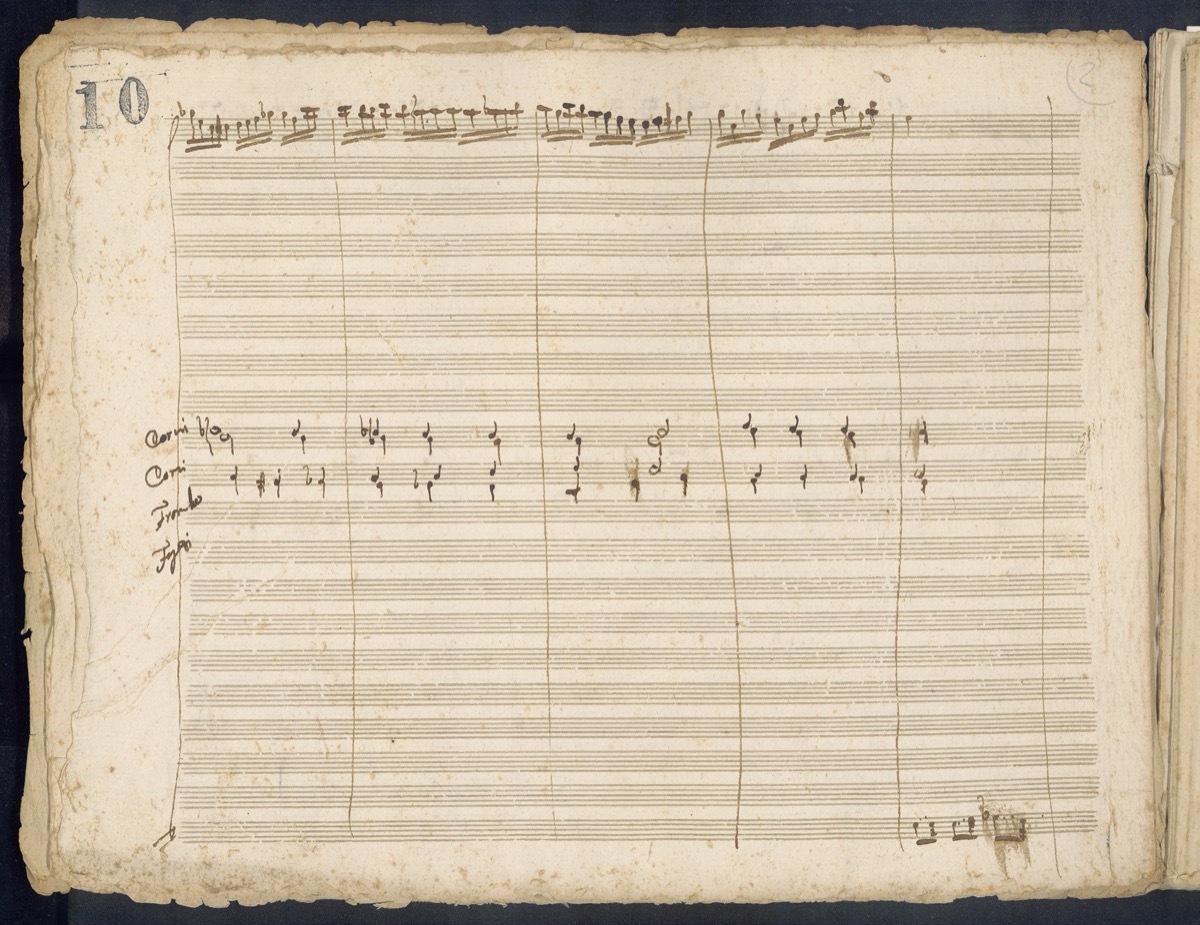 10
2
Corni
Corni
Trombe
Fagtti